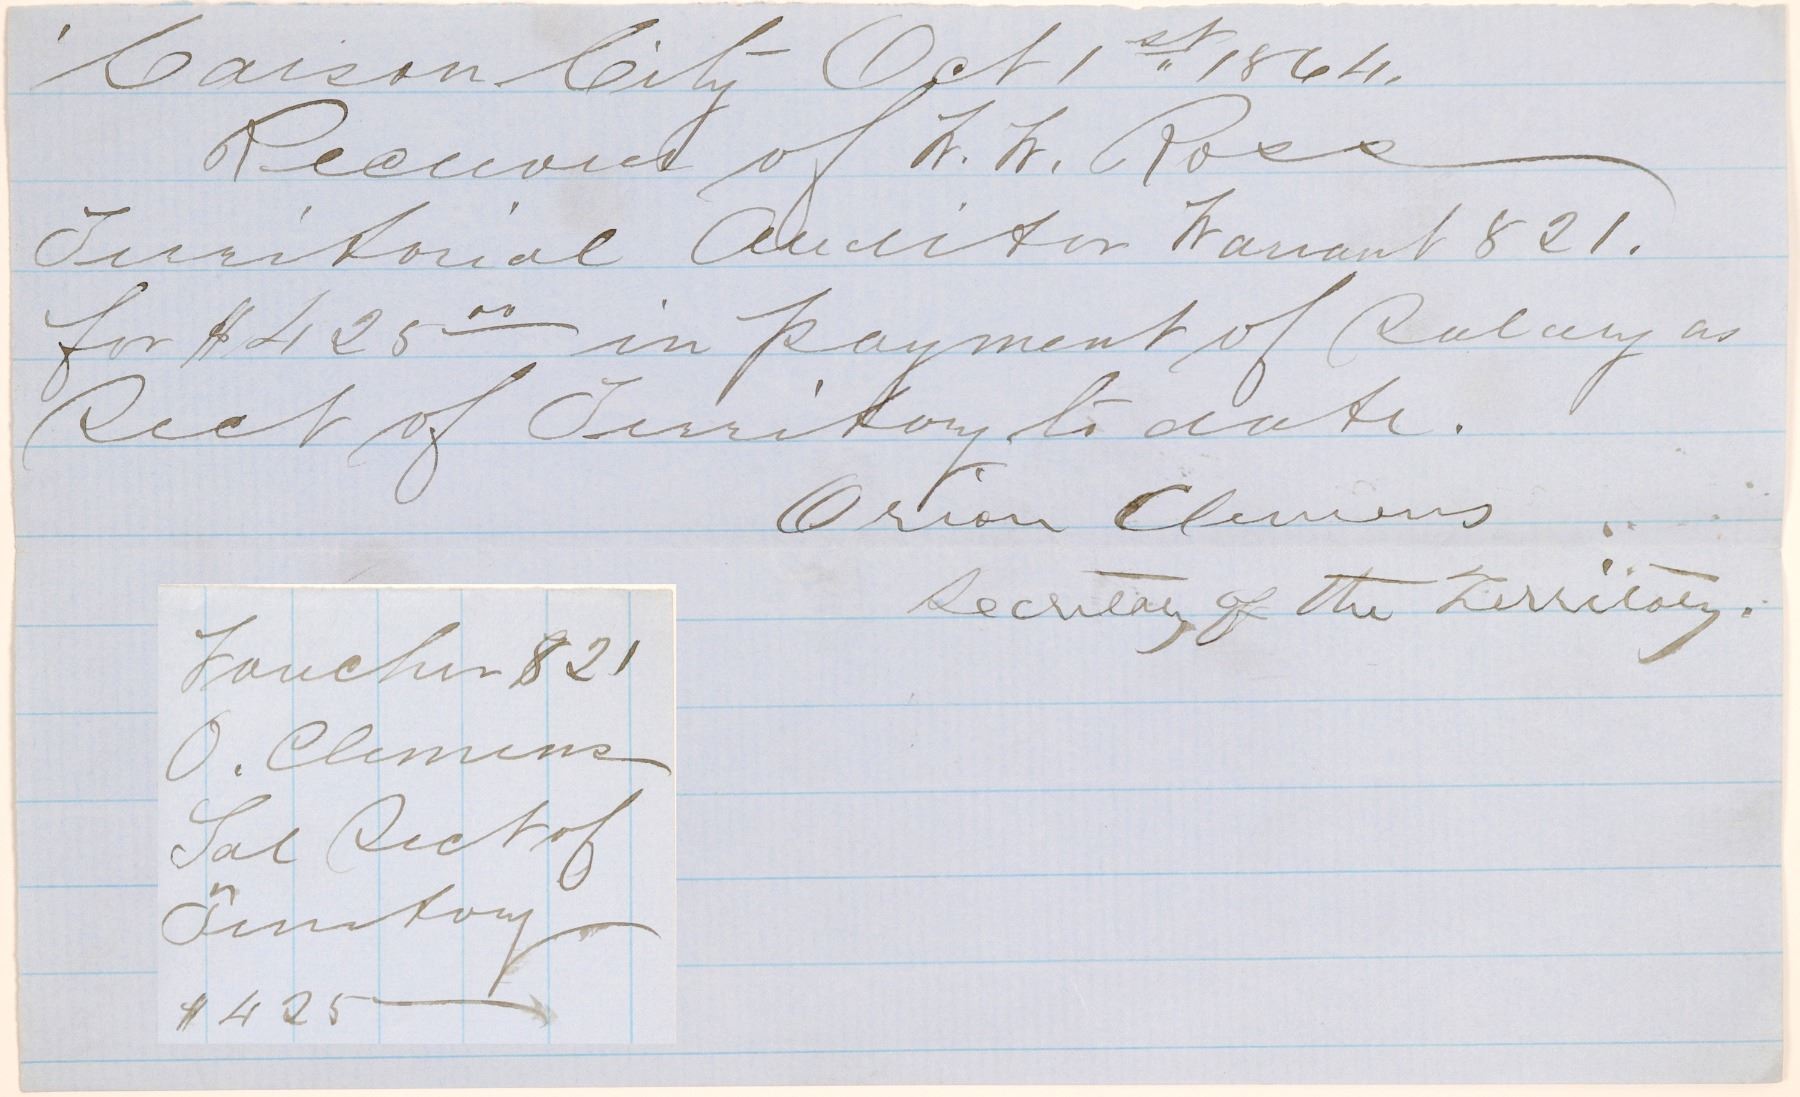 Carson City Oct 1st 1864.
Received of W. W. Ross
Territorial Auditor Warrant 821.
for $425 00 in payment of Salary as
Sect of Territory to date.
Orion Clemens
Secretary of the Territory.
Voucher 821
O. Clemens
Sal Sect of
Territory
$425